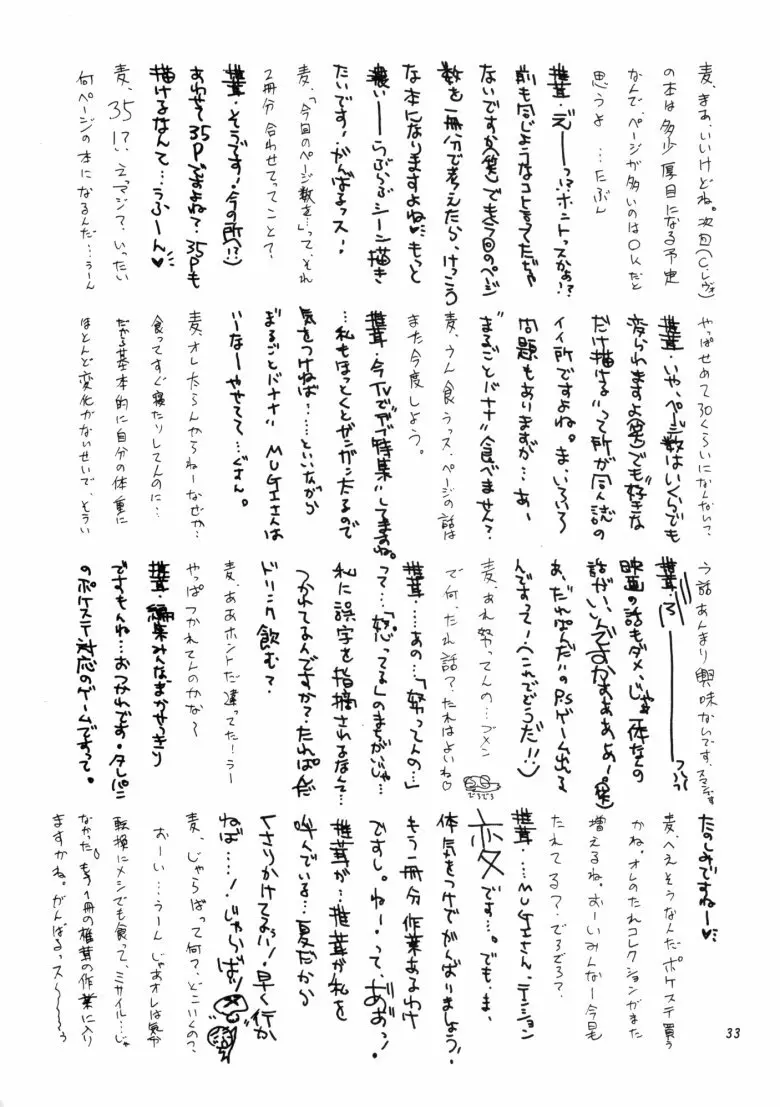 麦、まあ、いいけどね。次回(C.レヴォ)
の本は多少厚目になる予定
なんで、ページが多いのはOKだと
思うよ…たぶん
椎茸・えーーっ!?ホントっスかぁ!?
前も同じようなコト言ってたじゃ
ないですか(笑)でも今回のページ
数を一冊分で考えたら、けっこう
な本になりますよね♥もっと
濃いーーらぶらぶシーン描き
たいです!がんばるっス!
麦、「今回のページ数を…」って、それ
2冊分合わせてってことで?
椎茸・そうです!今の所(!?)
あわせて35Pですよね?35Pも
描けるなんて…うふーん♥
麦、35!?えっマジで、いったい
何ページの本になるんだ…うーん
やっぱせめて30くらいになんない?
椎茸・いや、ページ数はいくらでも
変られますよ(笑)でも"好きな
だけ描ける"って所が同人誌の
イイ所ですよね。ま、いろいろ
問題もありますが…あ、
"まるごとバナナ"食べません?
麦、うん食うっス、ページの話は
また今度しよう。
椎茸・今TVで"デブ特集"してますね。
…私もほっとくとガンガン太るので
気をつけねば……といいながら
"まるごとバナナ" MUGIさんは
いーなーやせてて…ぐすん。
麦、オレ太らんからねーなぜか…
食ってすぐ寝たりしてんのに…
だから基本的に自分の体重に
ほとんど変化がないせいで、そうい
う話あんまり興味ないです、スマンです
椎茸・ろーーーーっっっ
映画の話もダメ、じゃあ一体なんの
話がいいんですかぁぁぁぁ!(笑)
あ、"たれぱんだ"のPSゲーム出る
んですって!(これでどうだ!!)
麦、あれ努ってんの…ブメン
で何、たれ話?たれはよいね♡
でろでろ
椎茸……あの…「努ってんの…」
って…「怒ってる」のまちがいじゃ…
私に誤字を指摘されるなんて…
つかれてるんですか?たれぱんだ
ドリンク飲む?
麦、ああホントだ違ってた!うー
やっぱつかれてんのかな〜
椎茸・編集みんなまかせっきり
ですもんね…おつかれです・タレパン
のポケステ対応のゲームですって。
たのしみですねー♥
麦、へえそうなんだポケステ買う
かね。オレのたれコレクションがまた
増えるね。おーいみんなー今日も
たれてる?でろでろ?
椎茸・…MUGIさん、テンション
変です…。でも、ま、
体気をつけてがんばりましょう!
もう一冊分作業あるわけ
ですし。ねー・って、ああっ!
椎茸が…椎茸が私を
呼んでいる…夏だから
くさりかけてるぅ!!早く行か
ねば…!じゃらばっ!
麦、じゃらばって何?、どこいくの?
おーい…うーんじゃあオレは気分
転換にメシでも食って、ミサイル…じゃ
なかった。もう1冊の椎茸の作業に入り
ますかね。がんばるっス〜〜〜〜
33